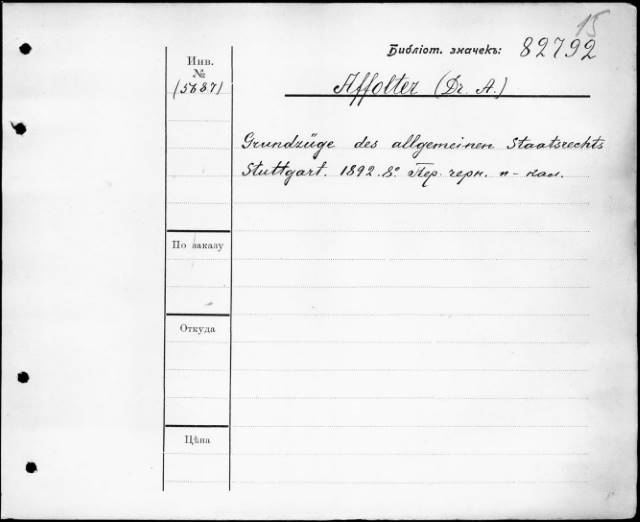 15
Библіот. значекъ: 82792
Инв.
№
(5687)
Affolter (Dr. A.)
Grundzüge des allgemeinen Staatsrechts
Stuttgart. 1892. 8° Пер. черн. п-кол.
По заказу
Откуда
Цѣна